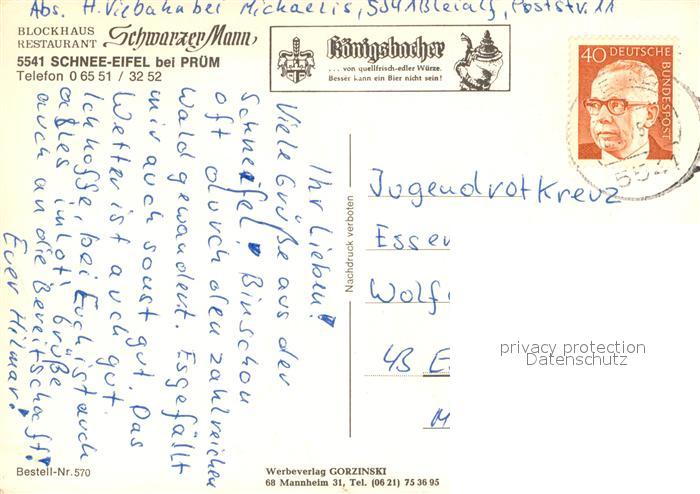 Abs. H. Viebahn bei Michaelis, 5541 Bleialf, Poststr. 11
BLOCKHAUS
RESTAURANT Schwarzer Mann
5541 SCHNEE-EIFEL bei PRÜM
Telefon 0 65 51 / 32 52
Königsbacher
... von quellfrisch-edler Würze.
Besser kann ein Bier nicht sein!
40 DEUTSCHE
BUNDESPOST
5541
Ihr Lieben!
Viele Grüße aus der
Schneifel! Bin schon
oft durch den zahlreichen
Wald gewandert. Es gefällt
mir auch sonst gut. Das
Wetter ist auch gut.
Ich hoffe, bei Euch ist auch
alles im Lot. Grüße
auch an die Bereitschaft!
Euer Hilmar!
Nachdruck verboten
Jugendrotkreuz
Essen
Wolf
43 E
M
privacy protection
Datenschutz
Bestell-Nr. 570
Werbeverlag GORZINSKI
68 Mannheim 31, Tel. (06 21) 75 36 95